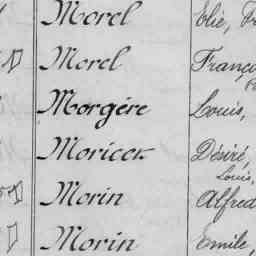 Morel Elie,
Morel
Morgère Louis,
Moricet Désiré,
Louis,
Morin Alfred
Morin Emile,